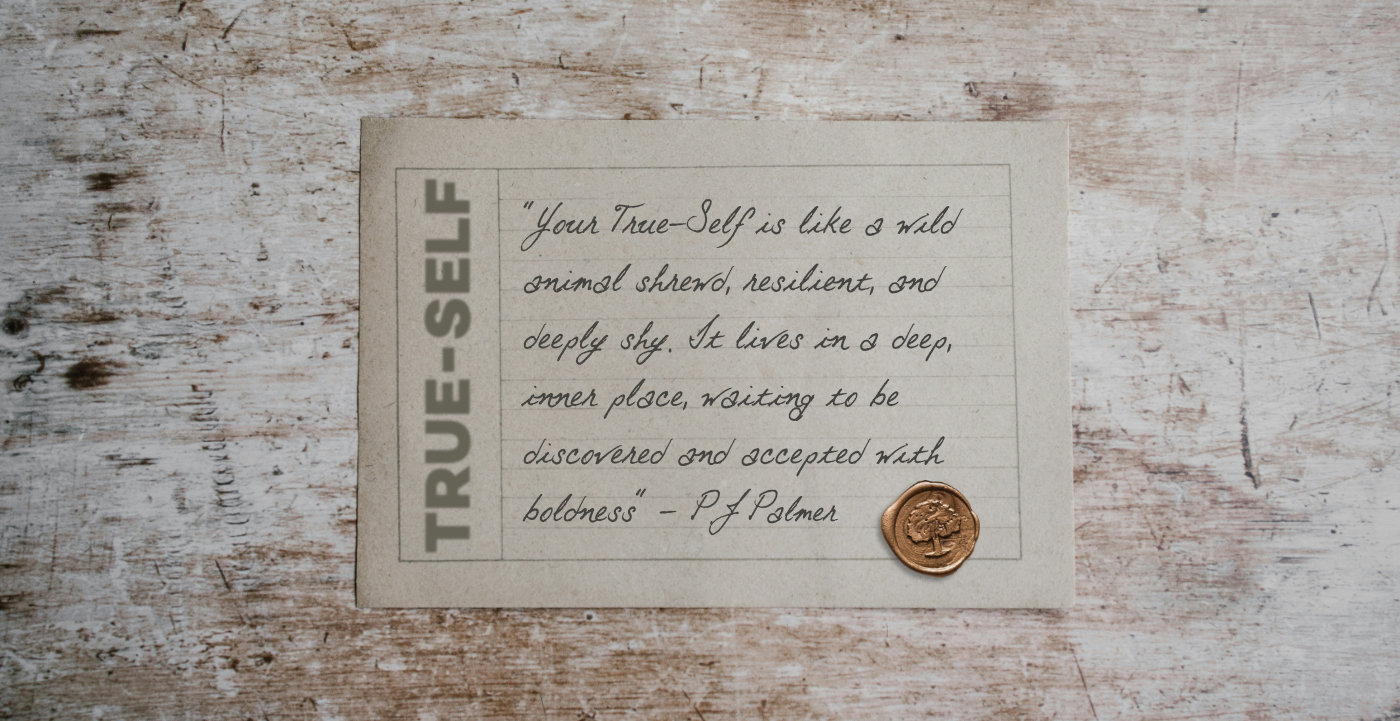 TRUE-SELF
"Your True-Self is like a wild
animal shrewd, resilient, and
deeply shy. It lives in a deep,
inner place, waiting to be
discovered and accepted with
boldness" - P J Palmer